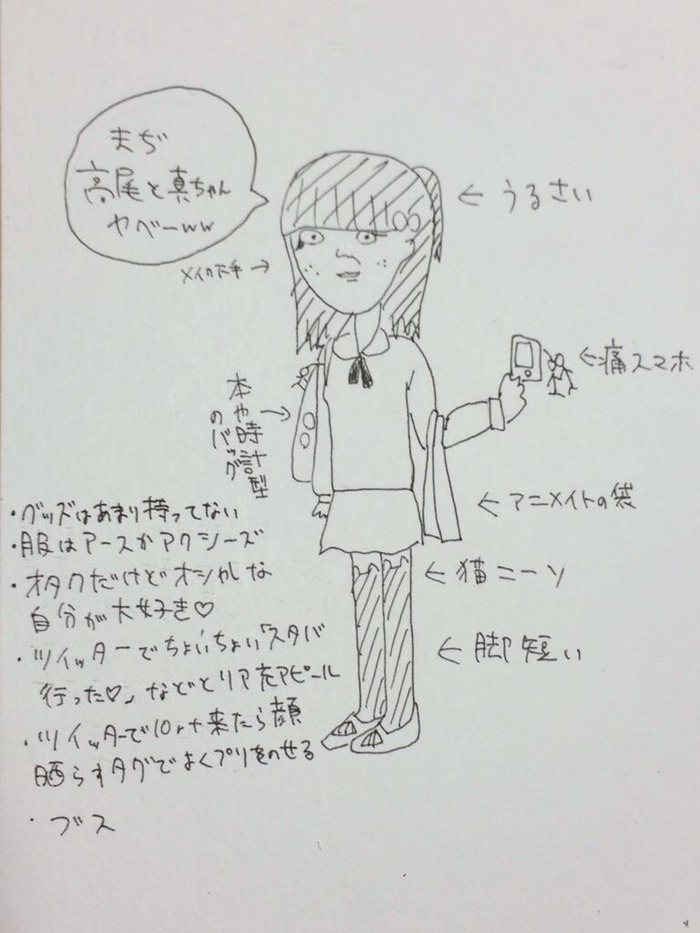 まぢ
高尾と真ちゃん
ヤベーww
← うるさい
メイク下手 →
← 痛スマホ
本や時計型
のバッグ
→
← アニメイトの袋
← 猫ニーソ
← 脚短い
・グッズはあまり持ってない
・服はアースかアクシーズ
・オタクだけどオシャレな
自分が大好き♡
・ツイッターでちょいちょい「スタバ
行った♡」などとリア充アピール
・ツイッターで10rt来たら顔
晒らすタグでよくプリをのせる
・ブス